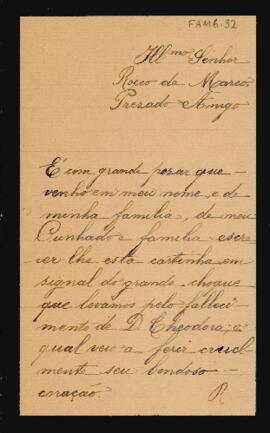 FAMB.32
Ill.mo Senhor
Rocco de Marco.
Prezado Amigo
É com grande pesar que
venho em meu nome e de
minha familia, de meu
Cunhado e familia escre-
ver lhe esta cartinha em
signal do grande choque
que levamos pelo falleci-
mento de D. Theodora; a
qual veio a ferir cruel-
mente seu bondoso
coração.
R